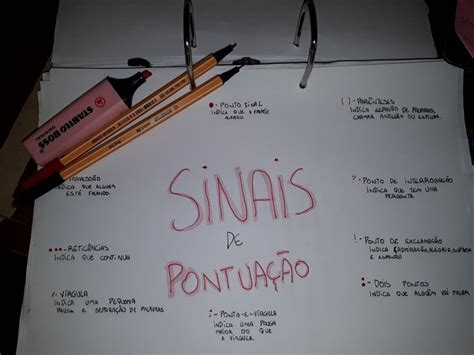 STABILO BOSS
ORIGINAL
SINAIS
DE
PONTUAÇÃO
• - PONTO FINAL
INDICA QUE A FRASE
ACABOU.
( ) - PARÊNTESES
INDICA SEPARAÇÃO DE PALAVRAS,
CHAMAR ATENÇÃO OU EXPLICAR.
? - PONTO DE INTERROGAÇÃO
INDICA QUE TEM UMA
PERGUNTA.
! - PONTO DE EXCLAMAÇÃO
INDICA ADMIRAÇÃO, ALEGRIA, SURPRESA
E ESPANTO
: - DOIS PONTOS
INDICA QUE ALGUÉM VAI FALAR
; - PONTO-E-VÍRGULA
INDICA UMA PAUSA
MAIOR DO QUE
A VÍRGULA.
, - VÍRGULA
INDICA UMA PEQUENA
PAUSA E SEPARAÇÃO DE PALAVRAS
... - RETICÊNCIAS
INDICA QUE CONTINUA
TRAVESSÃO
INDICA QUE ALGUÉM
ESTÁ FALANDO.